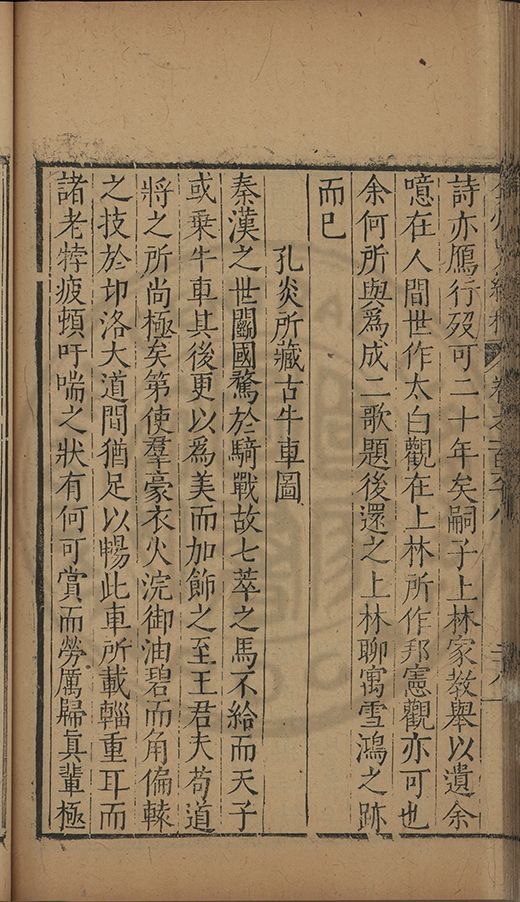 詩亦鴈行歿可二十年矣嗣子上林家教舉以遺余
噫在人間世作太白觀在上林所作邦憲觀亦可也
余何所與爲成二歌題後還之上林聊寓雪鴻之跡
而已
孔炎所藏古牛車圖
秦漢之世鬬國騖於騎戰故七萃之馬不給而天子
或乗牛車其後更以爲美而加飾之至王君夫苟道
將之所尚極矣第使羣豪衣火浣御油碧而角偏轅
之技於卭洛大道間猶足以暢此車所載輜重耳而
諸老牸疲頓吁喘之狀有何可賞而勞厲歸真輩極